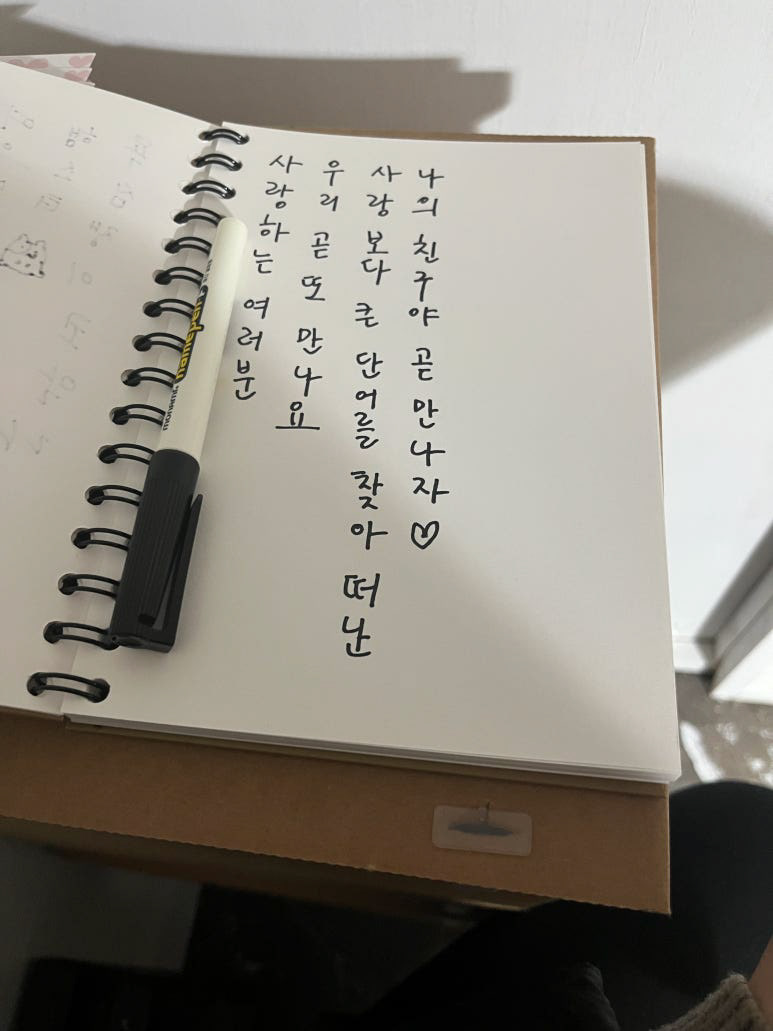 사랑하는 여러분
우리 곧 또 만나요
사랑보다 큰 단어를 찾아 떠난
나의 친구야 곧 만나자♡
monami
namepen